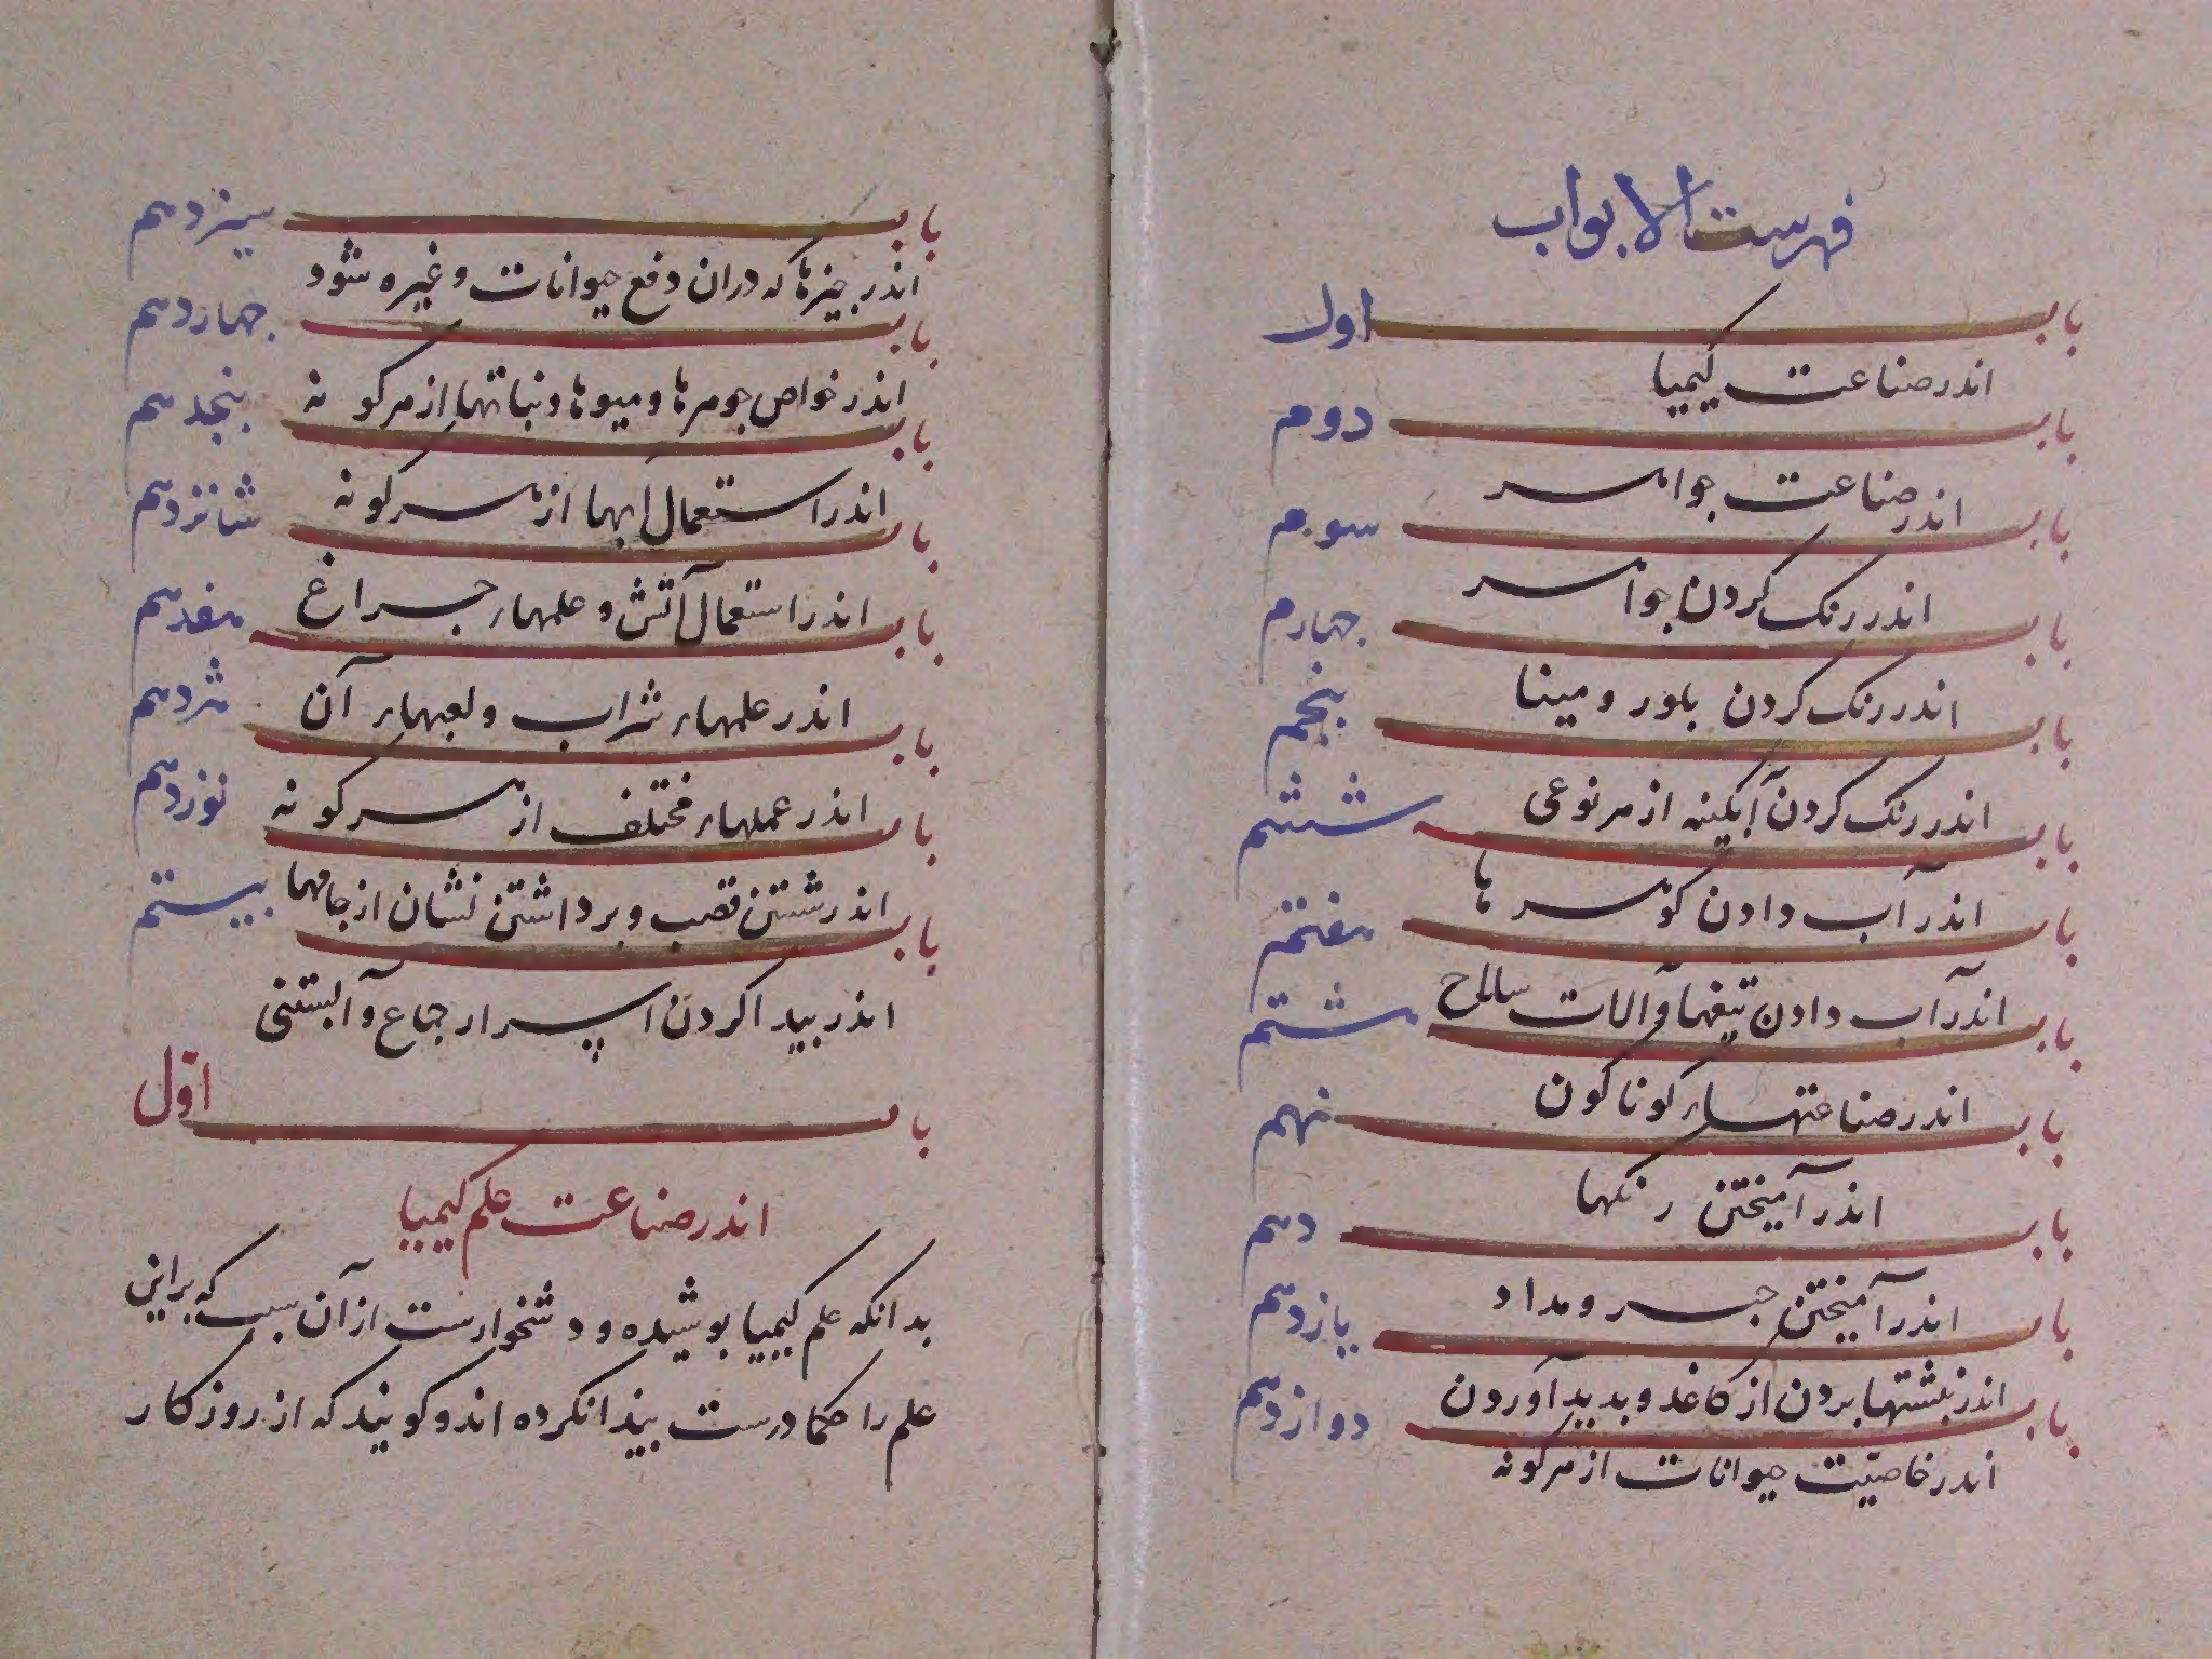 فهرست الابواب
باب اول
اندر صناعت کیمیا
باب دوم
اندر صناعت جواهر
باب سوم
اندر رنک کردن جواهر
باب جهارم
اندر رنک کردن بلور و مینا
باب بنجم
اندر رنک کردن آبکینه از هر نوعی
باب ششم
اندر آب دادن کوهرها
باب هفتم
اندر آب دادن تیغها و آلات سلاح
باب هشتم
اندر صناعتهاء کوناکون
باب نهم
اندر آمیختن رنکها
باب دهم
اندر آمیختن حبر و مداد
باب یازدهم
اندر نبشتها بردن از کاغد و بدید آوردن
باب دوازدهم
اندر خاصیّت حیوانات از هر کونه
باب سیزدهم
اندر جیزها که دران دفع حیوانات و غیره شود
باب جهاردهم
اندر خواص جوهرها و میوها و نباتها از هر کونه
باب بنجدهم
اندر استعمال آبها از هر کونه
باب شانزدهم
اندر استعمال آتش و علمهاء جراغ
باب هفدهم
اندر علمهاء شراب و لعبهاء آن
باب هژدهم
اندر عملهاء مختلف از هر کونه
باب نوزدهم
اندر شستن قصب و برداشتن نشان از جامها
باب بیستم
اندر بیدا کردن اسرار جماع و آبستنی
باب اوّل
اندر صناعت علم کیمیا
بدانکه علم کیمیا بوشیده و دشخوارست از آن سبب که براین
علم را حکما درست بیدا نکرده اند و کویند که از روزکار